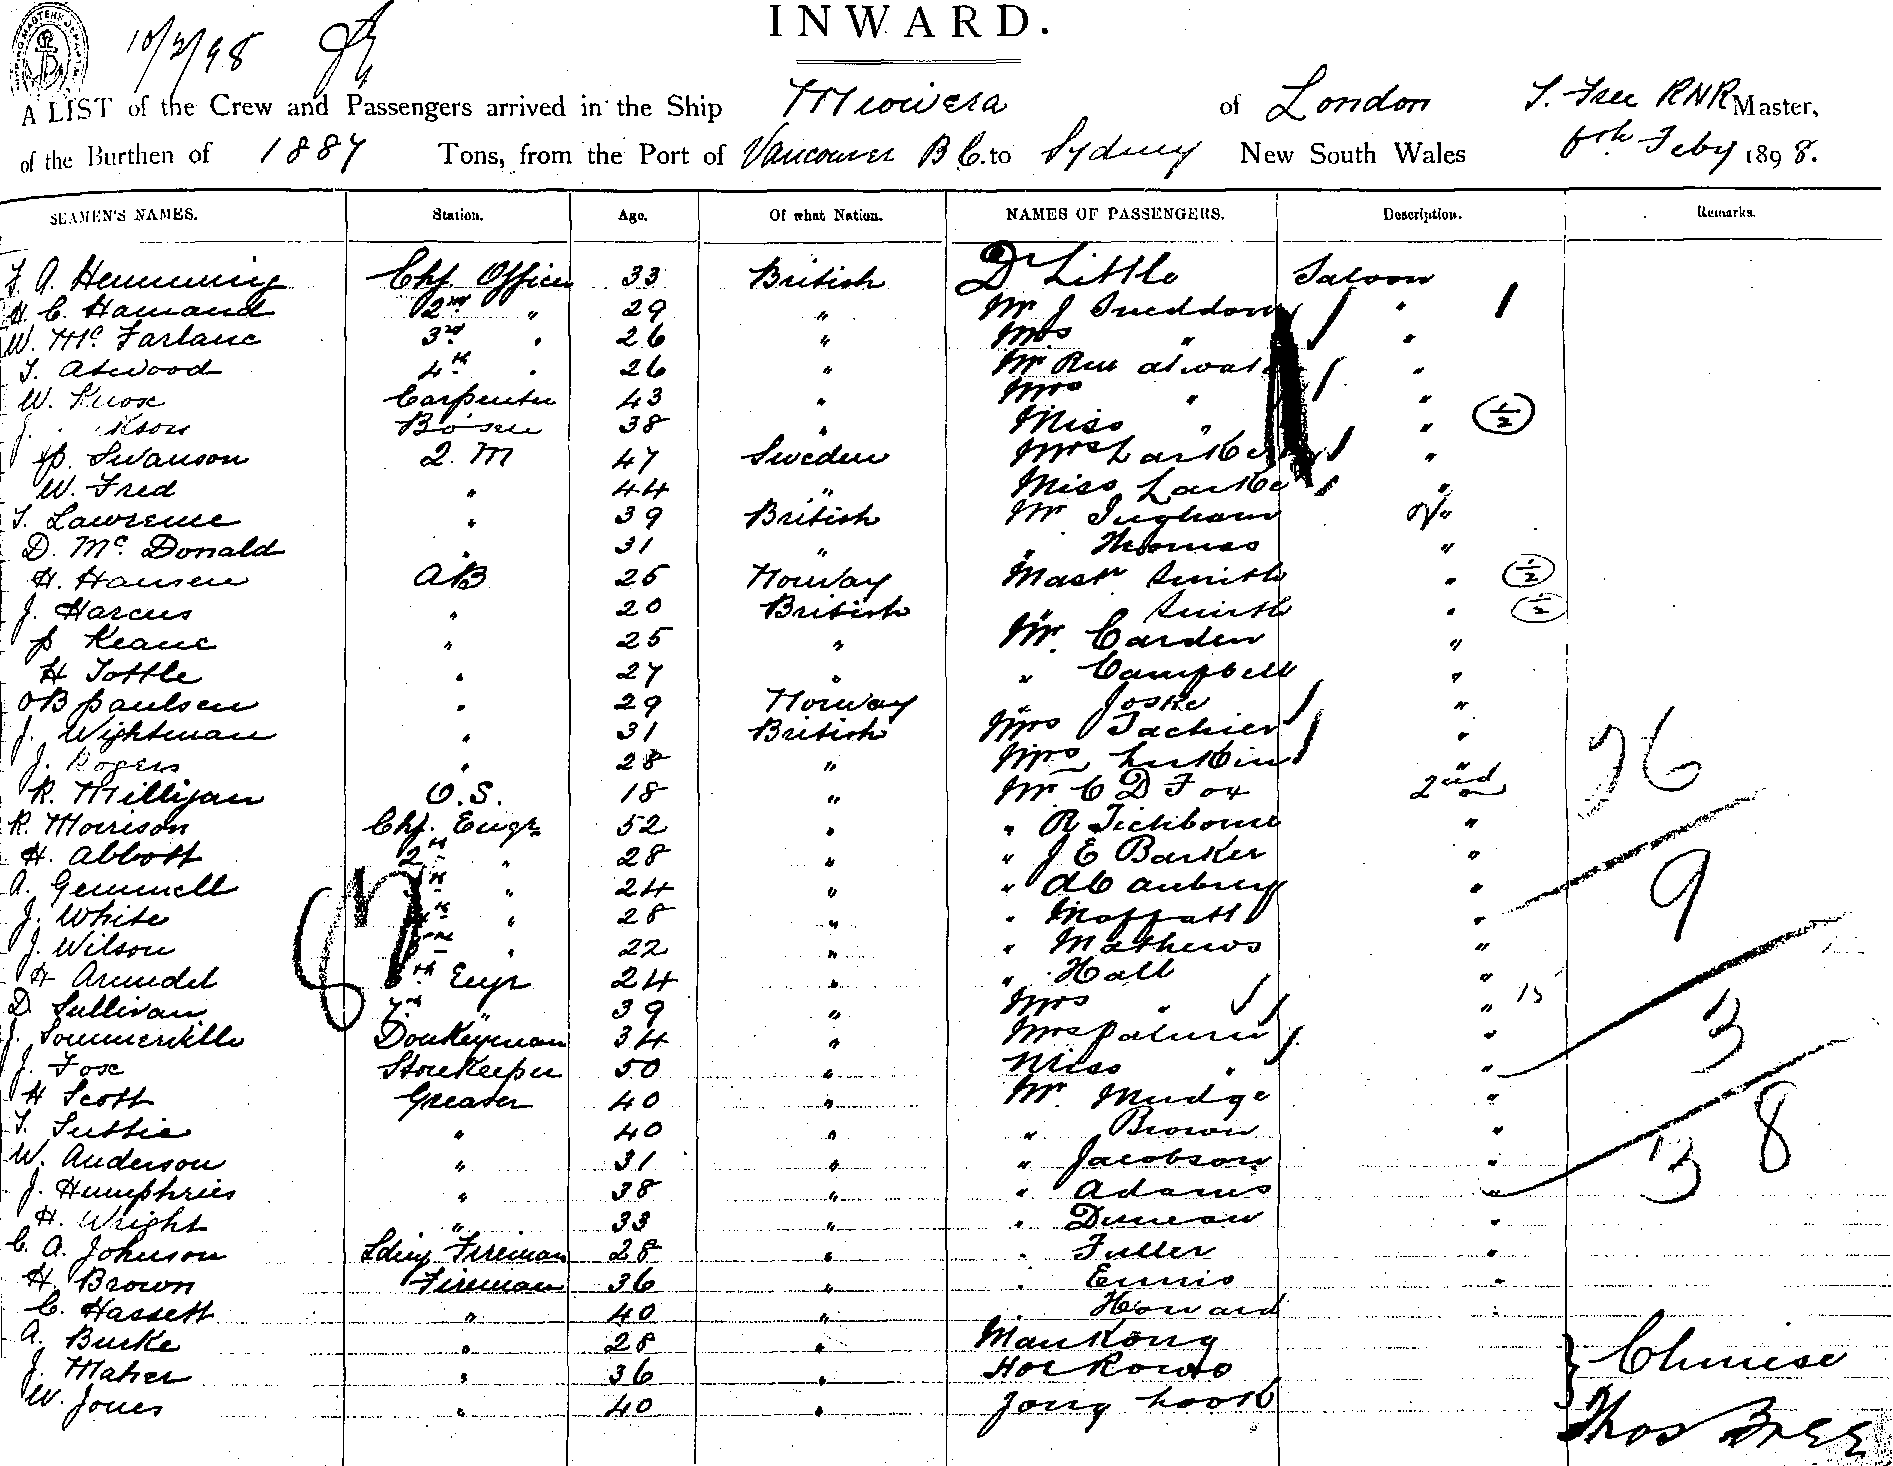 INWARD.
10/2/98
A LIST of the Crew and Passengers arrived in the Ship Miowera of London T. Free RNR Master,
of the Burthen of 1887 Tons, from the Port of Vancouver B C. to Sydney New South Wales Feby 1898.
SEAMEN'S NAMES. Station. Age. Of what Nation. NAMES OF PASSENGERS. Description. Remarks.
F A. Hemming Chf. Officer 33 British Dr Little Saloon
H. C. Hamand 2nd " 29 " Mr J Sneddon "
W. Mc Farlane 3rd " 26 " Mrs " "
T. Atwood 4th " 26 " Mr "
W. Knox Carpenter 43 " Mrs " "
J. Bosun 38 " Miss " " 1/2
P. Swanson Q. M 47 Sweden Mrs "
W. Fred " 44 " Miss "
T. Lawrence " 39 British Mr Ingham "
D. Mc Donald " 31 " " Thomas "
H. Hansen AB 25 Norway Mastr Smith " 1/2
J. Harcus " 20 British " Smith " 1/2
P Keane " 25 " Mr. Carden "
H Tottle " 27 " " Campbell "
OB Paulsen " 29 Norway " Joske "
J. Wightman " 31 British Mrs "
J. Rogers " 28 " Mrs "
R. Milligan O.S. 18 " Mr C D Fox 2nd 26
R. Morrison Chf. Engr 52 " " R Tichborne "
H. Abbott 2nd " 28 " " J E Barker "
A. Gemmell " 24 " " Aubrey " 9
J. White " 28 " " Moffatt "
J. Wilson " 22 " " Mathews "
H Arundel 6th Engr 24 " " Hall "
D. Sullivan 7th 39 " Mrs " " 3
J. Sommerville Donkeyman 34 " Mrs Palmer "
J. Fox Storekeeper 50 " Miss " "
H Scott Greaser 40 " Mr. Mudge "
T. Suttie " 40 " " Brown " 8
W. Anderson " 31 " " Jacobson " 3
J. Humphries " 38 " " Adams "
H. Wright " 33 " " Duncan "
C. A. Johnson Ldng Fireman 28 " " Fuller "
H. Brown Fireman 36 " " Ennis "
C. Hassett " 40 " Howard "
A. Burke " 28 " Man Kong
J. Maher " 36 " Chinese
W. Jones " 40 "
Thos Free